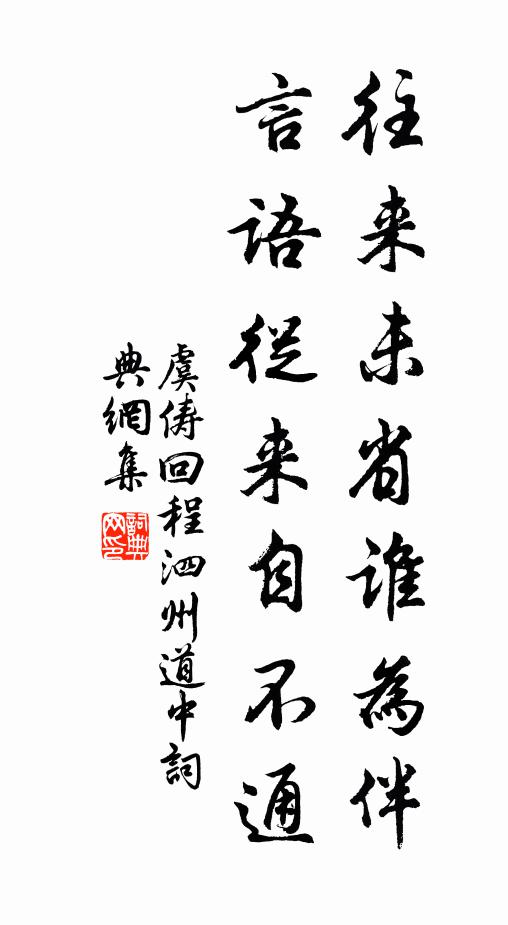 往来未省誰為伴
言語從来自不通
虞儔回程泗州道中詞
典網集
詞典
网印